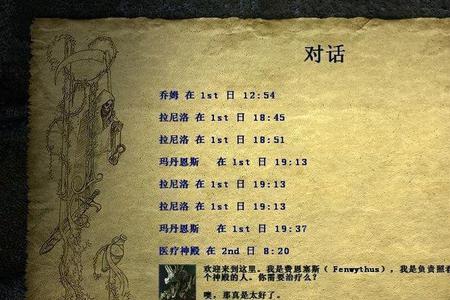 对话
乔姆 在 1st 日 12:54
拉尼洛 在 1st 日 18:45
拉尼洛 在 1st 日 18:51
玛丹恩斯 在 1st 日 19:13
拉尼洛 在 1st 日 19:13
拉尼洛 在 1st 日 19:13
玛丹恩斯 在 1st 日 19:37
医疗神殿 在 2nd 日 8:20
欢迎来到这里。我是费恩塞斯( Fenwythus），我是负责照看
个神殿的人。你需要治疗么?
噢，那真是太好了。